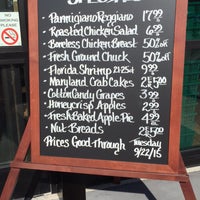 NO SMOKING PLEASE
• Parmigiano Reggiano 17.99
• Roasted Chicken Salad 6.99
• Boneless Chicken Breast 50% off
• Fresh Ground Chuck 50% off
• Florida Shrimp 21-25ct 9.99
• Maryland Crab Cakes 2/5.00
• Cotton Candy Grapes 3.99
• Honeycrisp Apples 2.99
• Fresh Baked Apple Pie 4.99
• Nut Breads 2/5.00
Prices Good Through Tuesday
9/22/15